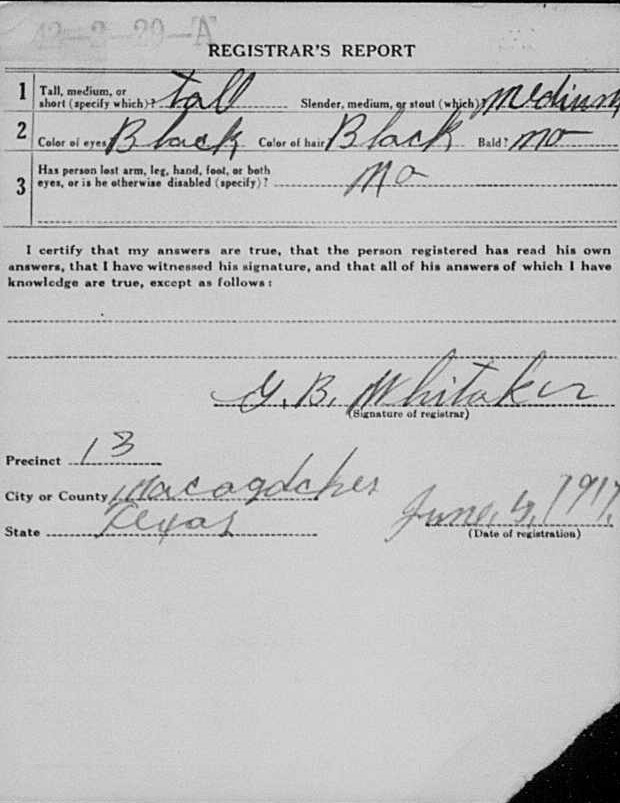 42-2-29-A
REGISTRAR'S REPORT
1 Tall, medium, or short (specify which)? tall Slender, medium, or stout (which)? medium
2 Color of eyes Black Color of hair Black Bald? no
3 Has person lost arm, leg, hand, foot, or both eyes, or is he otherwise disabled (specify)? no
I certify that my answers are true, that the person registered has read his own
answers, that I have witnessed his signature, and that all of his answers of which I have
knowledge are true, except as follows:
G. B. Whitaker
(Signature of registrar)
Precinct 13
City or County Nacogdoches
State Texas
June, 5, 1917.
(Date of registration)